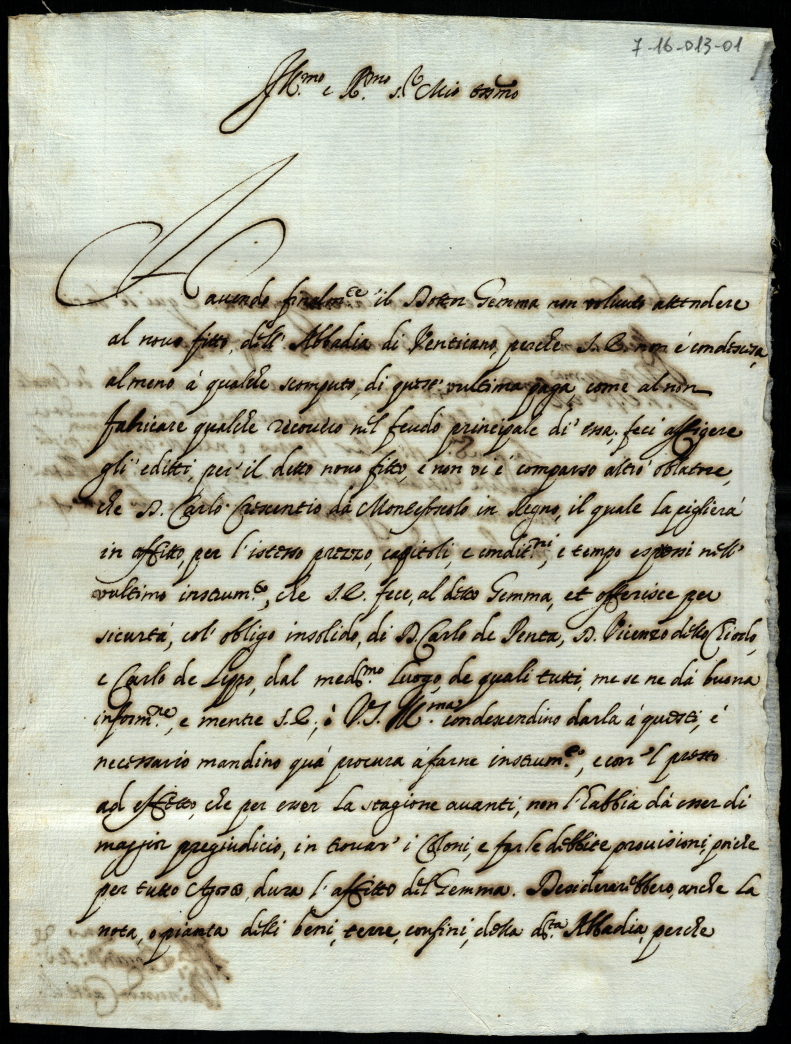 7-16-013-01
Ill.mo e R.mo S.r Mio
Hauendo finalm.te il Dottor Gemma non voluto attendere
al nouo fitto, dell'Abbadia di Venticano, perche S. E. non è condescesa,
almeno à qualche scomputo, di quest'vultima paga come al non
fabricare qualche recouero nel feudo principale di essa, feci affigere
gli editti, per il detto nouo fitto, e non vi è comparso altro oblatore,
che D. Carlo Crescentio da Montefuscolo in Regno, il quale la pigliera
in affitto, per l'istesso prezzo, capitoli, e condit.ni, e tempo espressi nell'
vultimo instrum.to, che S. E. fece, al detto Gemma, et offerisce per
sicurtà, col'obligo insolido, di D. Carlo de Penta, D. Vicenzo dello
e Carlo de Lippo, dal med.mo luogo, de quali tutti, me se ne dà buona
inform.ne, e mentre S. E., ò V. S. Ill.ma condescendino darla à questi, è
necessario mandino quà procura à farne instrum.to, e con'l presto
ad effetto, che per esser la stagione auanti, non l'habbia dà esser di
maggior pregiudicio, in trouar' i Coloni, e far le debbite prouisioni, poiche
per tutto Agosto, dura l'affitto del Gemma. Desiderarebbero, anche la
nota, o pianta delli beni, terre, confini, della d.ta Abbadia, perche